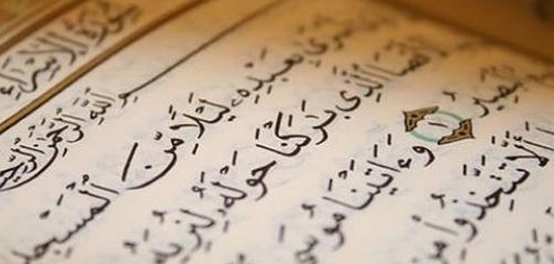 سُورَةُ الإِسْرَاءِ
بِسْمِ اللَّهِ الرَّحْمَٰنِ الرَّحِيمِ
بِعَبْدِهِۦ لَيْلًا مِّنَ ٱلْمَسْجِدِ
ٱلْأَقْصَا ٱلَّذِى بَٰرَكْنَا حَوْلَهُۥ لِنُرِيَهُۥ
ٱلْبَصِيرُ ١ وَءَاتَيْنَا مُوسَى
أَلَّا تَتَّخِذُوا۟ مِن